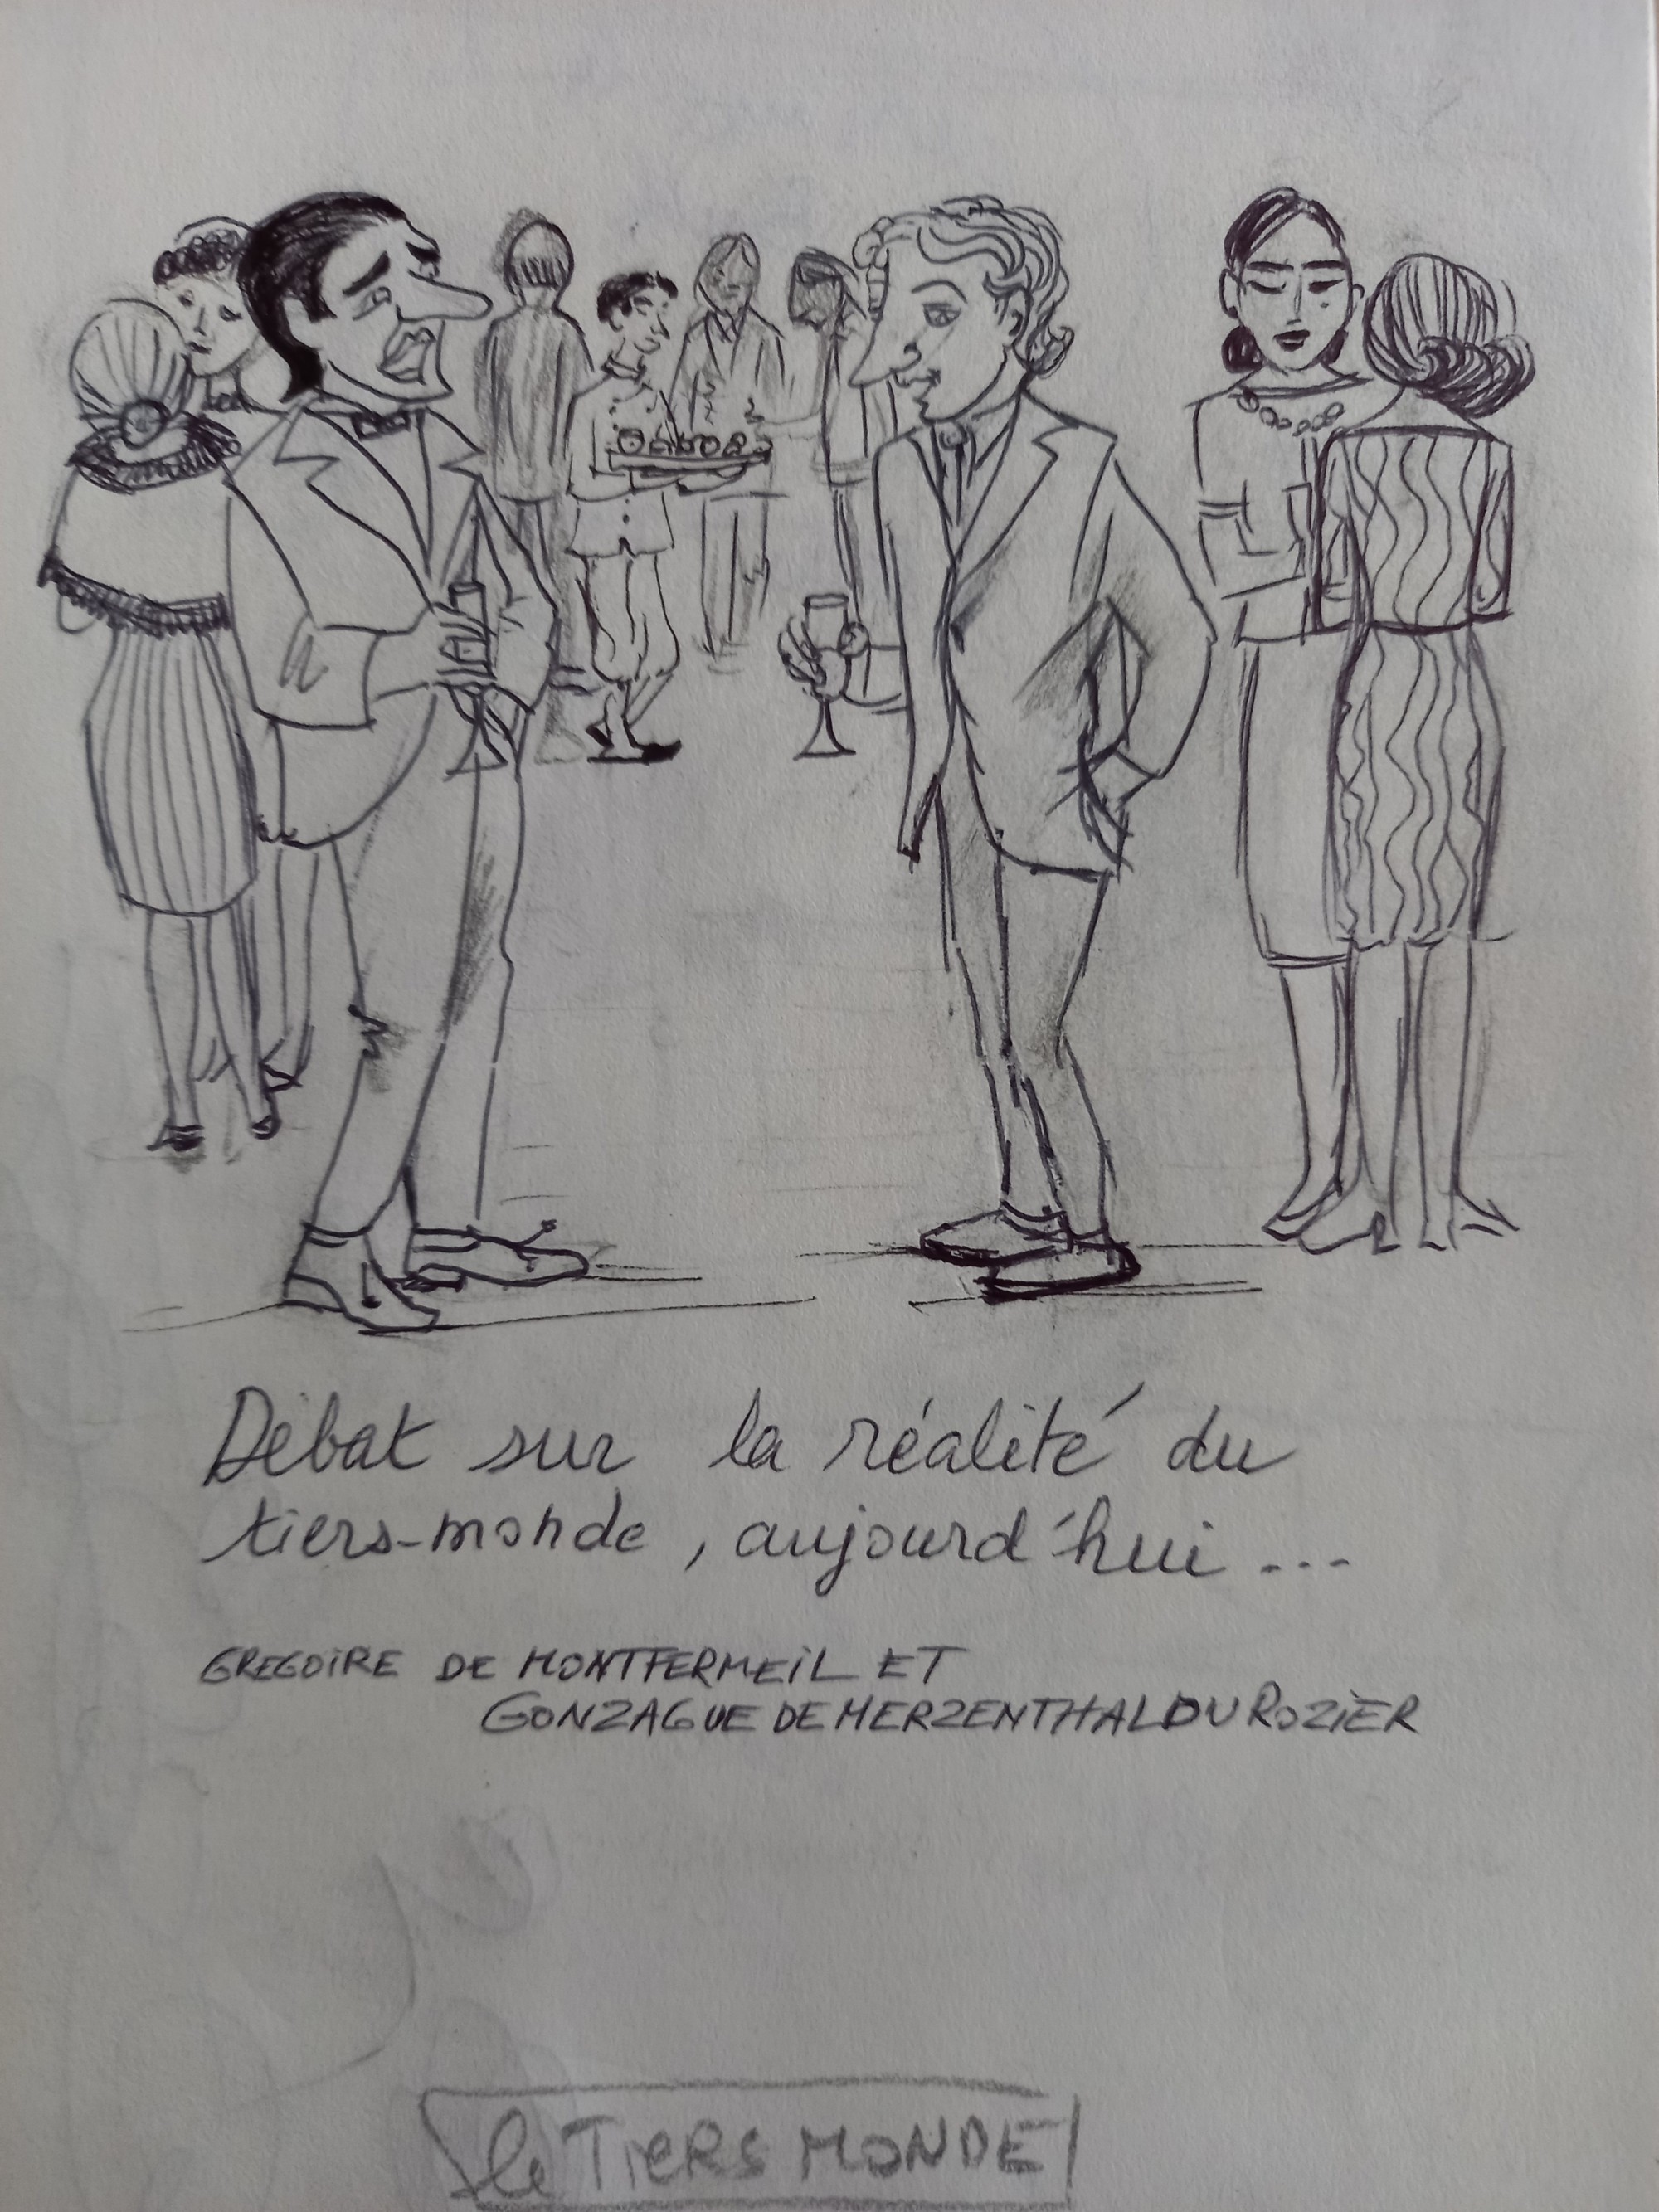 Débat sur la réalité du
tiers-monde, aujourd'hui ...
GREGOIRE DE MONTFERMEIL ET
GONZAGUE DE MERZENTHAL DU ROZIER
le TIERS MONDE